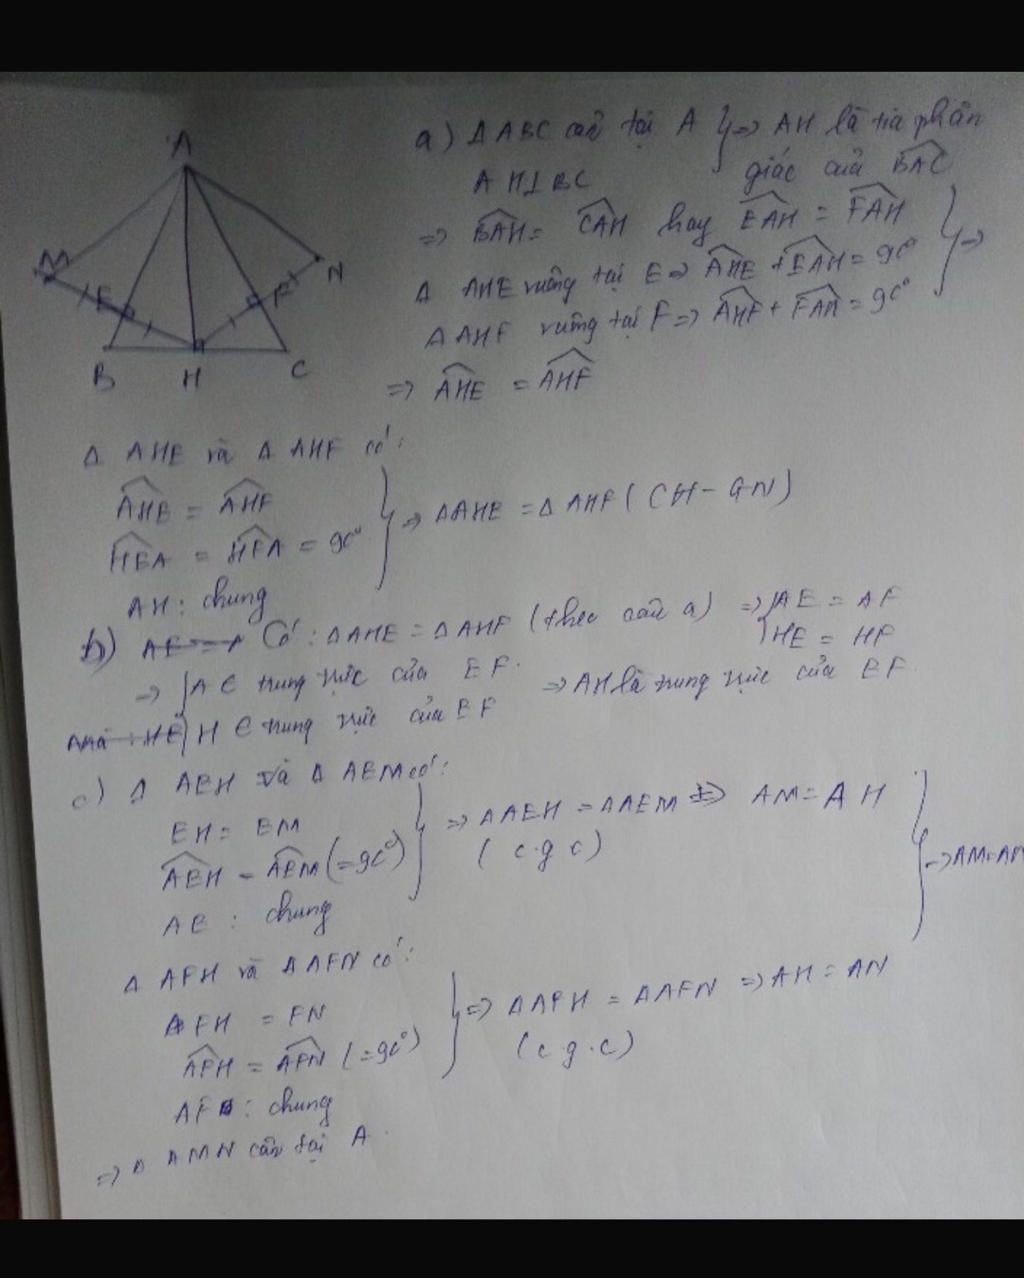 A
M
E
F
N
B
H
C
a) Δ ABC cân tại A } => AH là tia phân
AH ⊥ BC giác của BAC
=> BAH = CAH hay EAH = FAH
Δ AHE vuông tại E => AHE + EAH = 90° } =>
Δ AHF vuông tại F => AHF + FAH = 90°
=> AHE = AHF
Δ AHE và Δ AHF có:
AHE = AHF
HEA = HFA = 90° } => ΔAHE = Δ AHF (CH - GN)
AH: chung
b) Có: ΔAHE = ΔAHF (theo câu a) => { AE = AF
HE = HF
=> { A ∈ trung trực của EF. => AH là trung trực của EF.
H ∈ trung trực của EF
c) Δ AEH và Δ AEM có:
EH = EM
AEH = AEM (= 90°) } => ΔAEH = ΔAEM => AM = AH
(c.g.c)
AE: chung
} => AM = AN
Δ AFH và ΔAFN có:
FH = FN
AFH = AFN (= 90°) } => ΔAFH = ΔAFN => AH = AN
(c.g.c)
AF: chung
=> Δ AMN cân tại A.